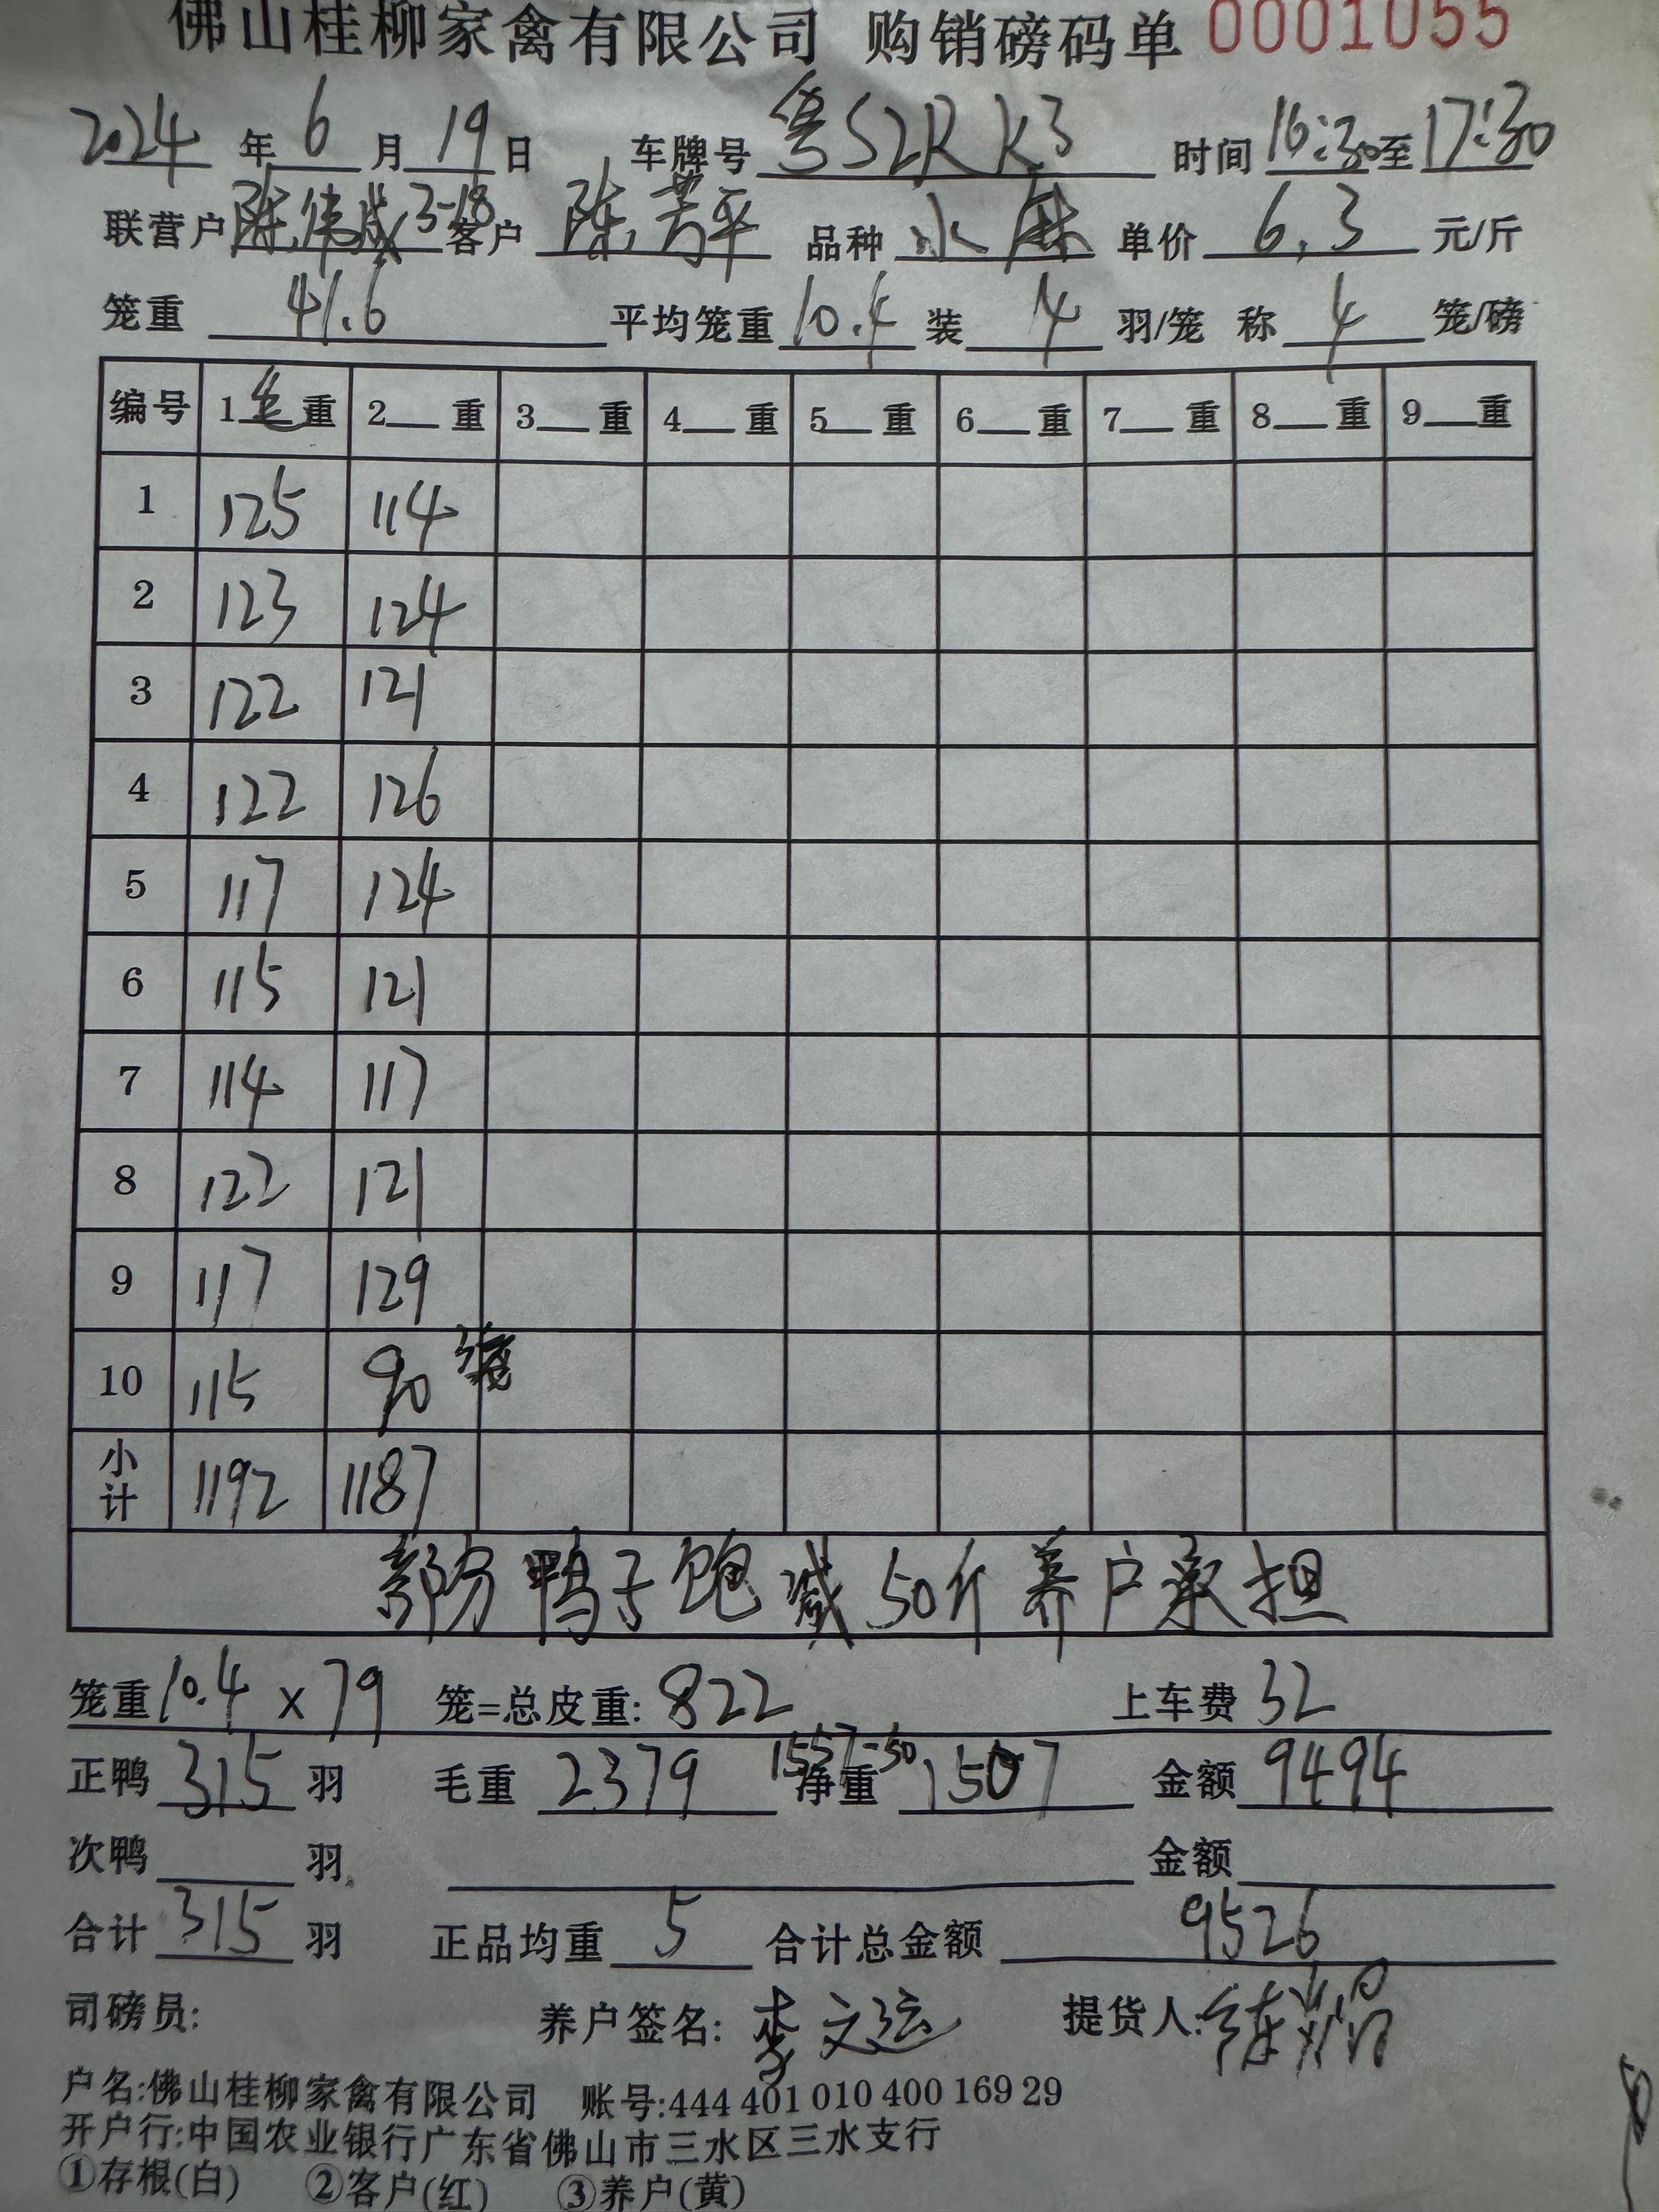 佛山桂柳家禽有限公司 购销磅码单 0001055
2024 年 6 月 19 日 车牌号 粤S2RK3 时间 16:30 至 17:30
联营户 陈伟成 3-18 客户 陈芳平 品种 水麻 单价 6.3 元/斤
笼重 41.6 平均笼重 10.4 装 4 羽/笼 称 4 笼/磅
编号 1 毛 重 2 重 3 重 4 重 5 重 6 重 7 重 8 重 9 重
1 125 114
2 123 124
3 122 121
4 122 126
5 117 124
6 115 121
7 114 117
8 122 121
9 117 129
10 115 90 3笼
小计 1192 1187
部分鸭子饱减50斤养户承担
笼重 10.4 x 79 笼=总皮重: 822 上车费 32
正鸭 315 羽 毛重 2379 1557-50 净重 1507 金额 9494
次鸭 羽 金额
合计 315 羽 正品均重 5 合计总金额 9526
司磅员: 养户签名: 李文运 提货人:
户名:佛山桂柳家禽有限公司 账号:444 401 010 400 169 29
开户行:中国农业银行广东省佛山市三水区三水支行
①存根(白) ②客户(红) ③养户(黄)